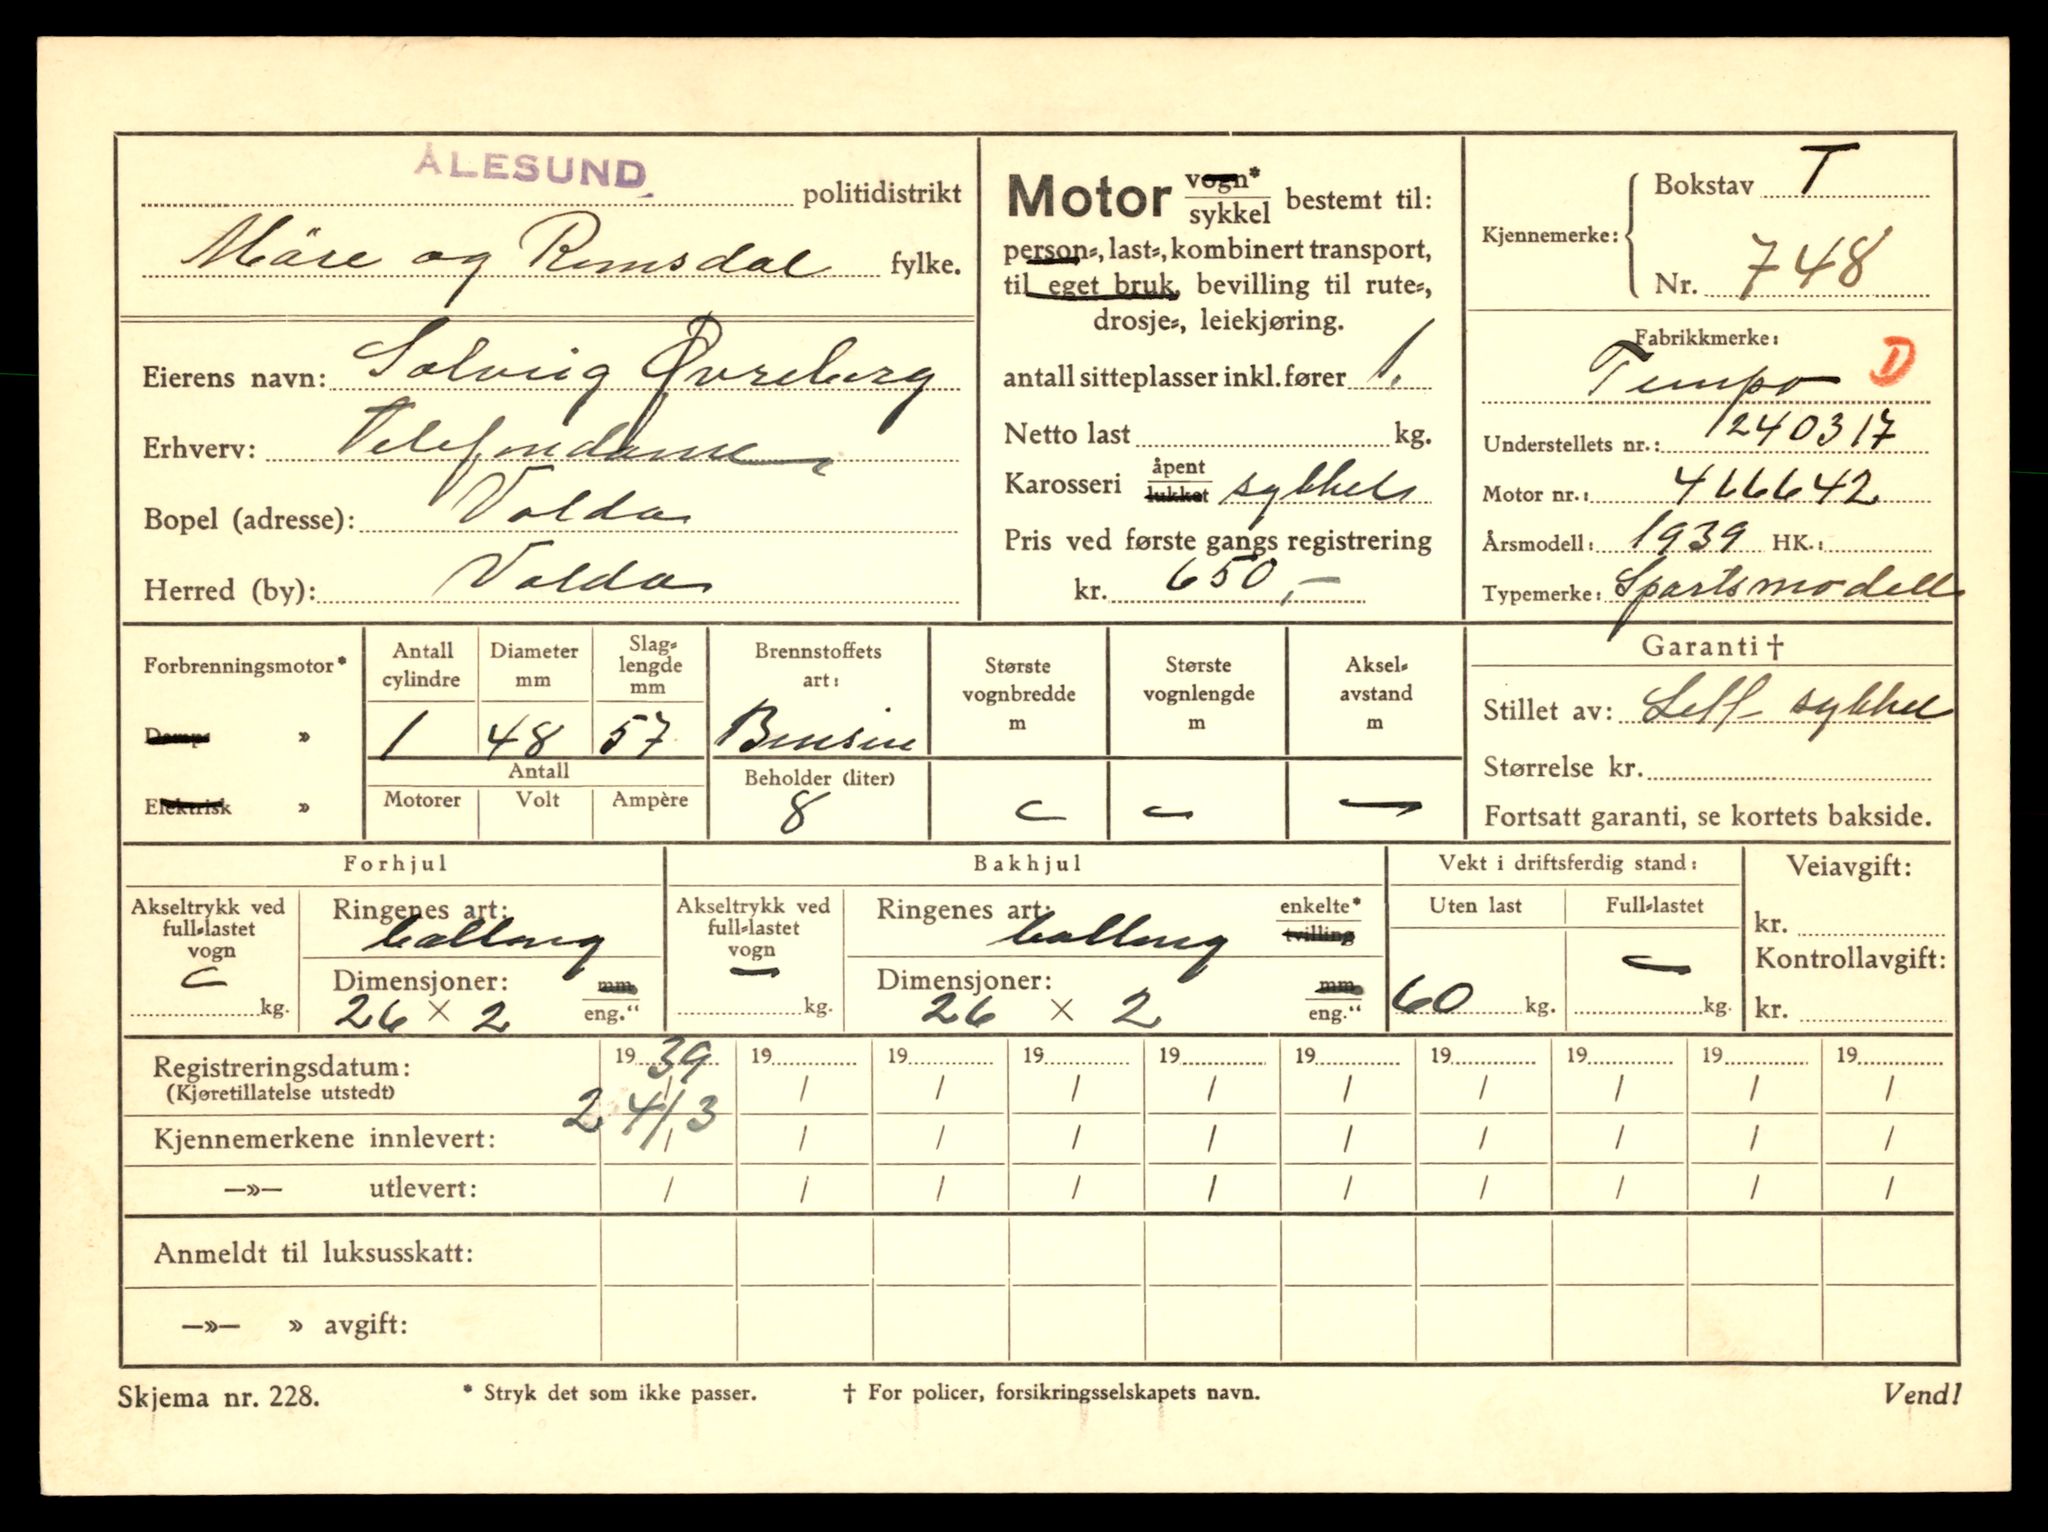 ÅLESUND politidistrikt
Möre og Romsdal fylke.
Eierens navn: Solveig Øvreberg
Erhverv: Telefondame
Bopel (adresse): Volda
Herred (by): Volda
Motor vogn* / sykkel bestemt til:
person-, last-, kombinert transport,
til eget bruk, bevilling til rute-,
drosje-, leiekjøring.
antall sitteplasser inkl. fører 1.
Netto last kg.
Karosseri åpent / lukket sykkel
Pris ved første gangs registrering
kr. 650,-
Kjennemerke: Bokstav T
Nr. 748
Fabrikkmerke:
Tempo D
Understellets nr.: 1240317
Motor nr.: 466642
Årsmodell: 1939 HK.:
Typemerke: Sportsmodell
Forbrenningsmotor*
Damp- »
Elektrisk »
Antall cylindre
Diameter mm
Slag-lengde mm
1 48 57
Antall
Motorer Volt Ampère
Brennstoffets art:
Bensin
Beholder (liter)
8
Største vognbredde m
Største vognlengde m
Aksel-avstand m
— — —
Garanti †
Stillet av: Lett sykkel
Størrelse kr.
Fortsatt garanti, se kortets bakside.
Forhjul
Akseltrykk ved full-lastet vogn
— kg.
Ringenes art:
ballong
Dimensjoner: mm
26 × 2 eng."
Bakhjul
Akseltrykk ved full-lastet vogn
— kg.
Ringenes art: enkelte*
ballong tvilling
Dimensjoner: mm
26 × 2 eng."
Vekt i driftsferdig stand:
Uten last Full-lastet
60 kg. — kg.
Veiavgift:
kr.
Kontrollavgift:
kr.
Registreringsdatum: 19 39 19 19 19 19 19 19 19 19 19
(Kjøretillatelse utstedt) 24/3 / / / / / / / / /
Kjennemerkene innlevert: / / / / / / / / / /
—»— utlevert: / / / / / / / / / /
Anmeldt til luksusskatt:
—»— » avgift:
Skjema nr. 228. * Stryk det som ikke passer. † For policer, forsikringsselskapets navn. Vend!